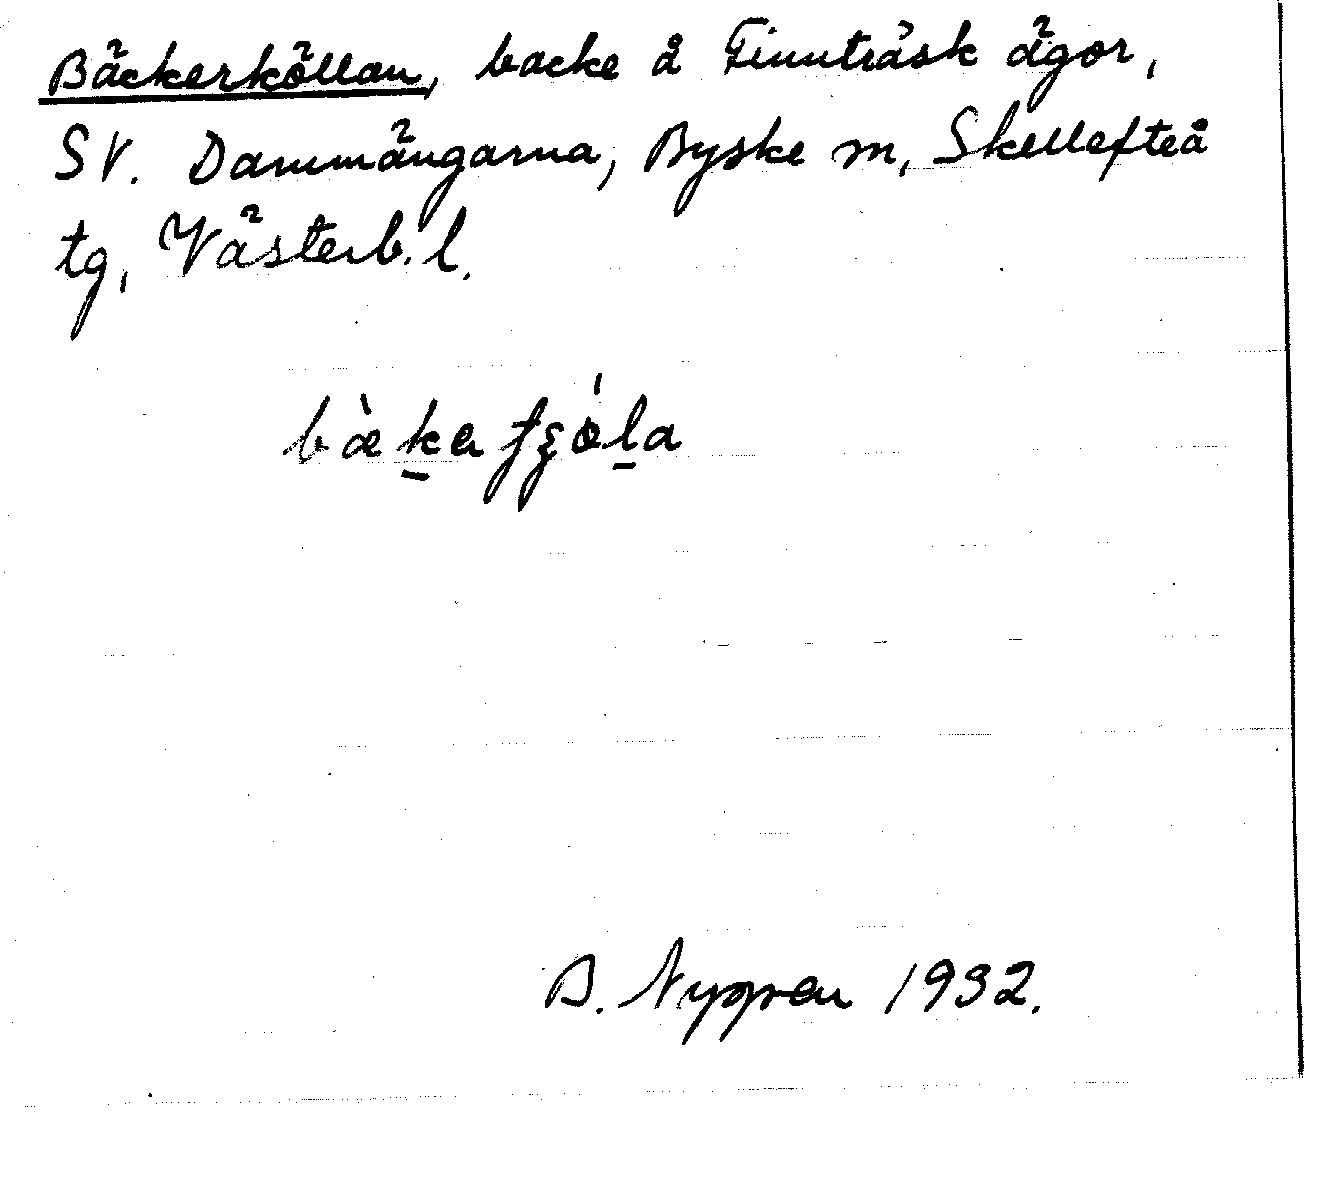 Bäckerköllan, backe å Finnträsk ägor,
SV. Dammängarna, Byske sn, Skellefteå
tg, Västerb. l.
B. Nygren 1932.